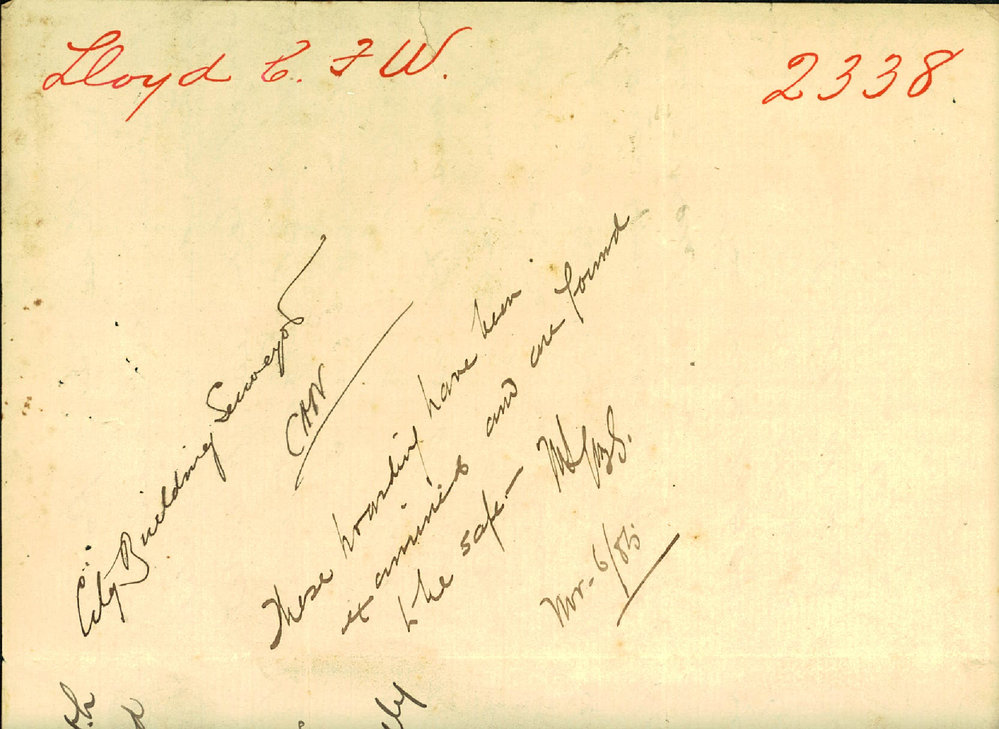 Lloyd C. F W. 2338
City Building Surveyor
These hoarding have been
examined and are found
to be safe.—
Nov. 6/05